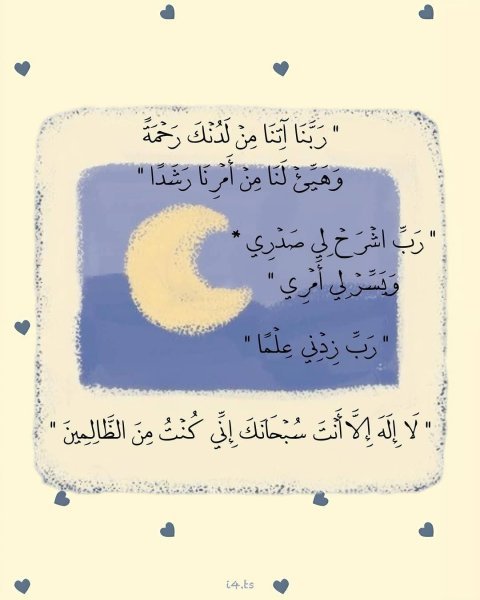 " رَبَّنَا آتِنَا مِنْ لَدُنْكَ رَحْمَةً
وَهَيِّئْ لَنَا مِنْ أَمْرِنَا رَشَدًا "
" رَبِّ اشْرَحْ لِي صَدْرِي *
وَيَسِّرْ لِي أَمْرِي "
" رَبِّ زِدْنِي عِلْمًا "
" لَا إِلَهَ إِلَّا أَنْتَ سُبْحَانَكَ إِنِّي كُنْتُ مِنَ الظَّالِمِينَ "
i4.ts